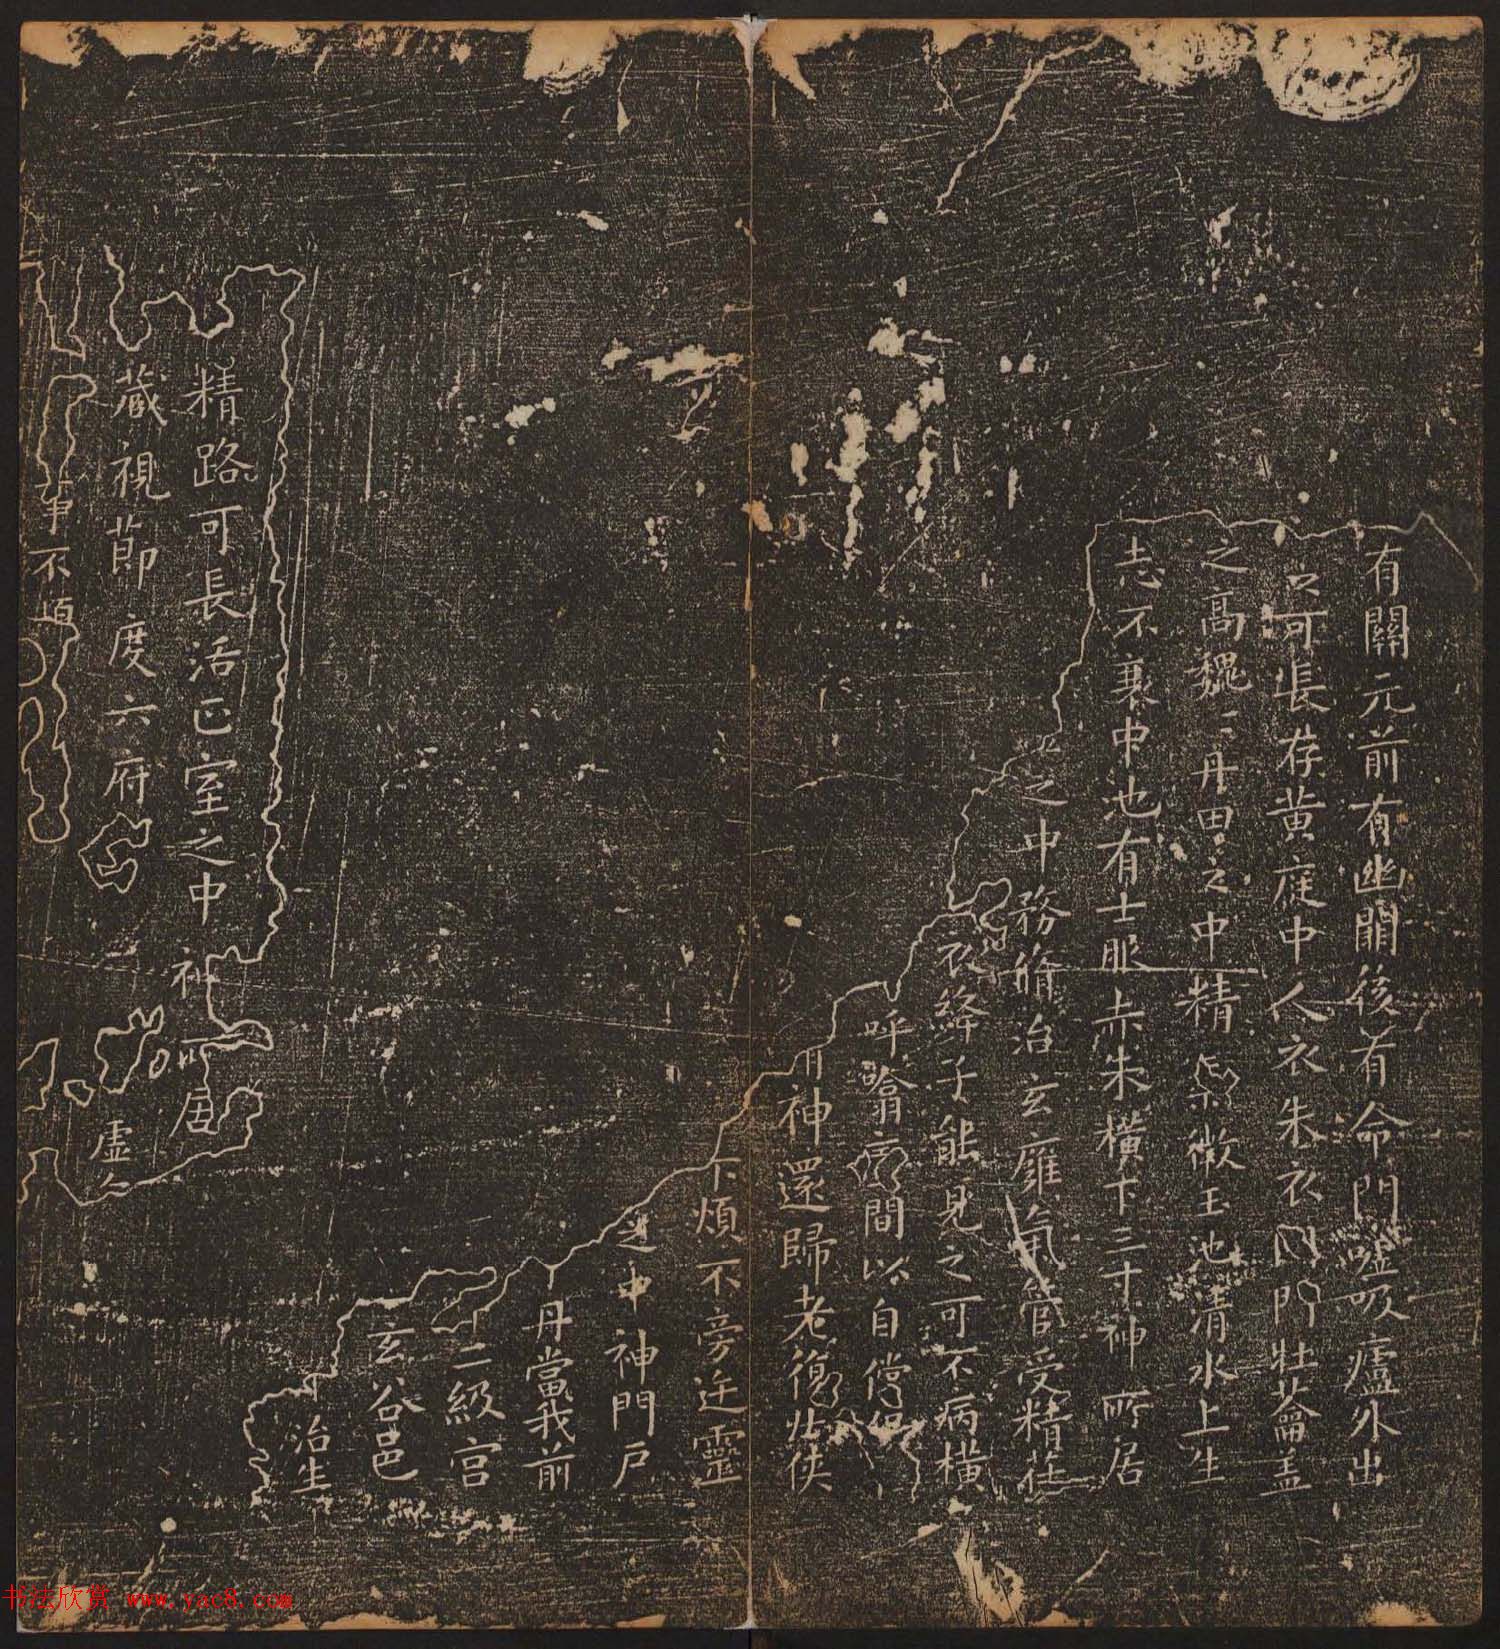 有關元前有幽闕後有命門噓吸廬外出
可長存黃庭中人衣朱衣門壯蘥盖
之高巍〻丹田之中精氣微玉池清水上生
志不衰中池有士服赤朱橫下三寸神所居
之中務脩治玄廱氣管受精
衣絳子能見之可不病橫
呼噏間以自償
神還歸老復壯俠
下煩不旁迕靈
中神門戶
丹當我前
二級宮
玄谷邑
治生
精路可長活正室之中神所居
藏視節度六府虛
事不
书法欣赏 www.yac8.com